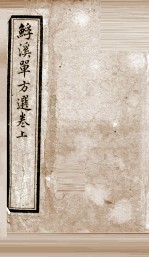 鯚溪單方選卷上